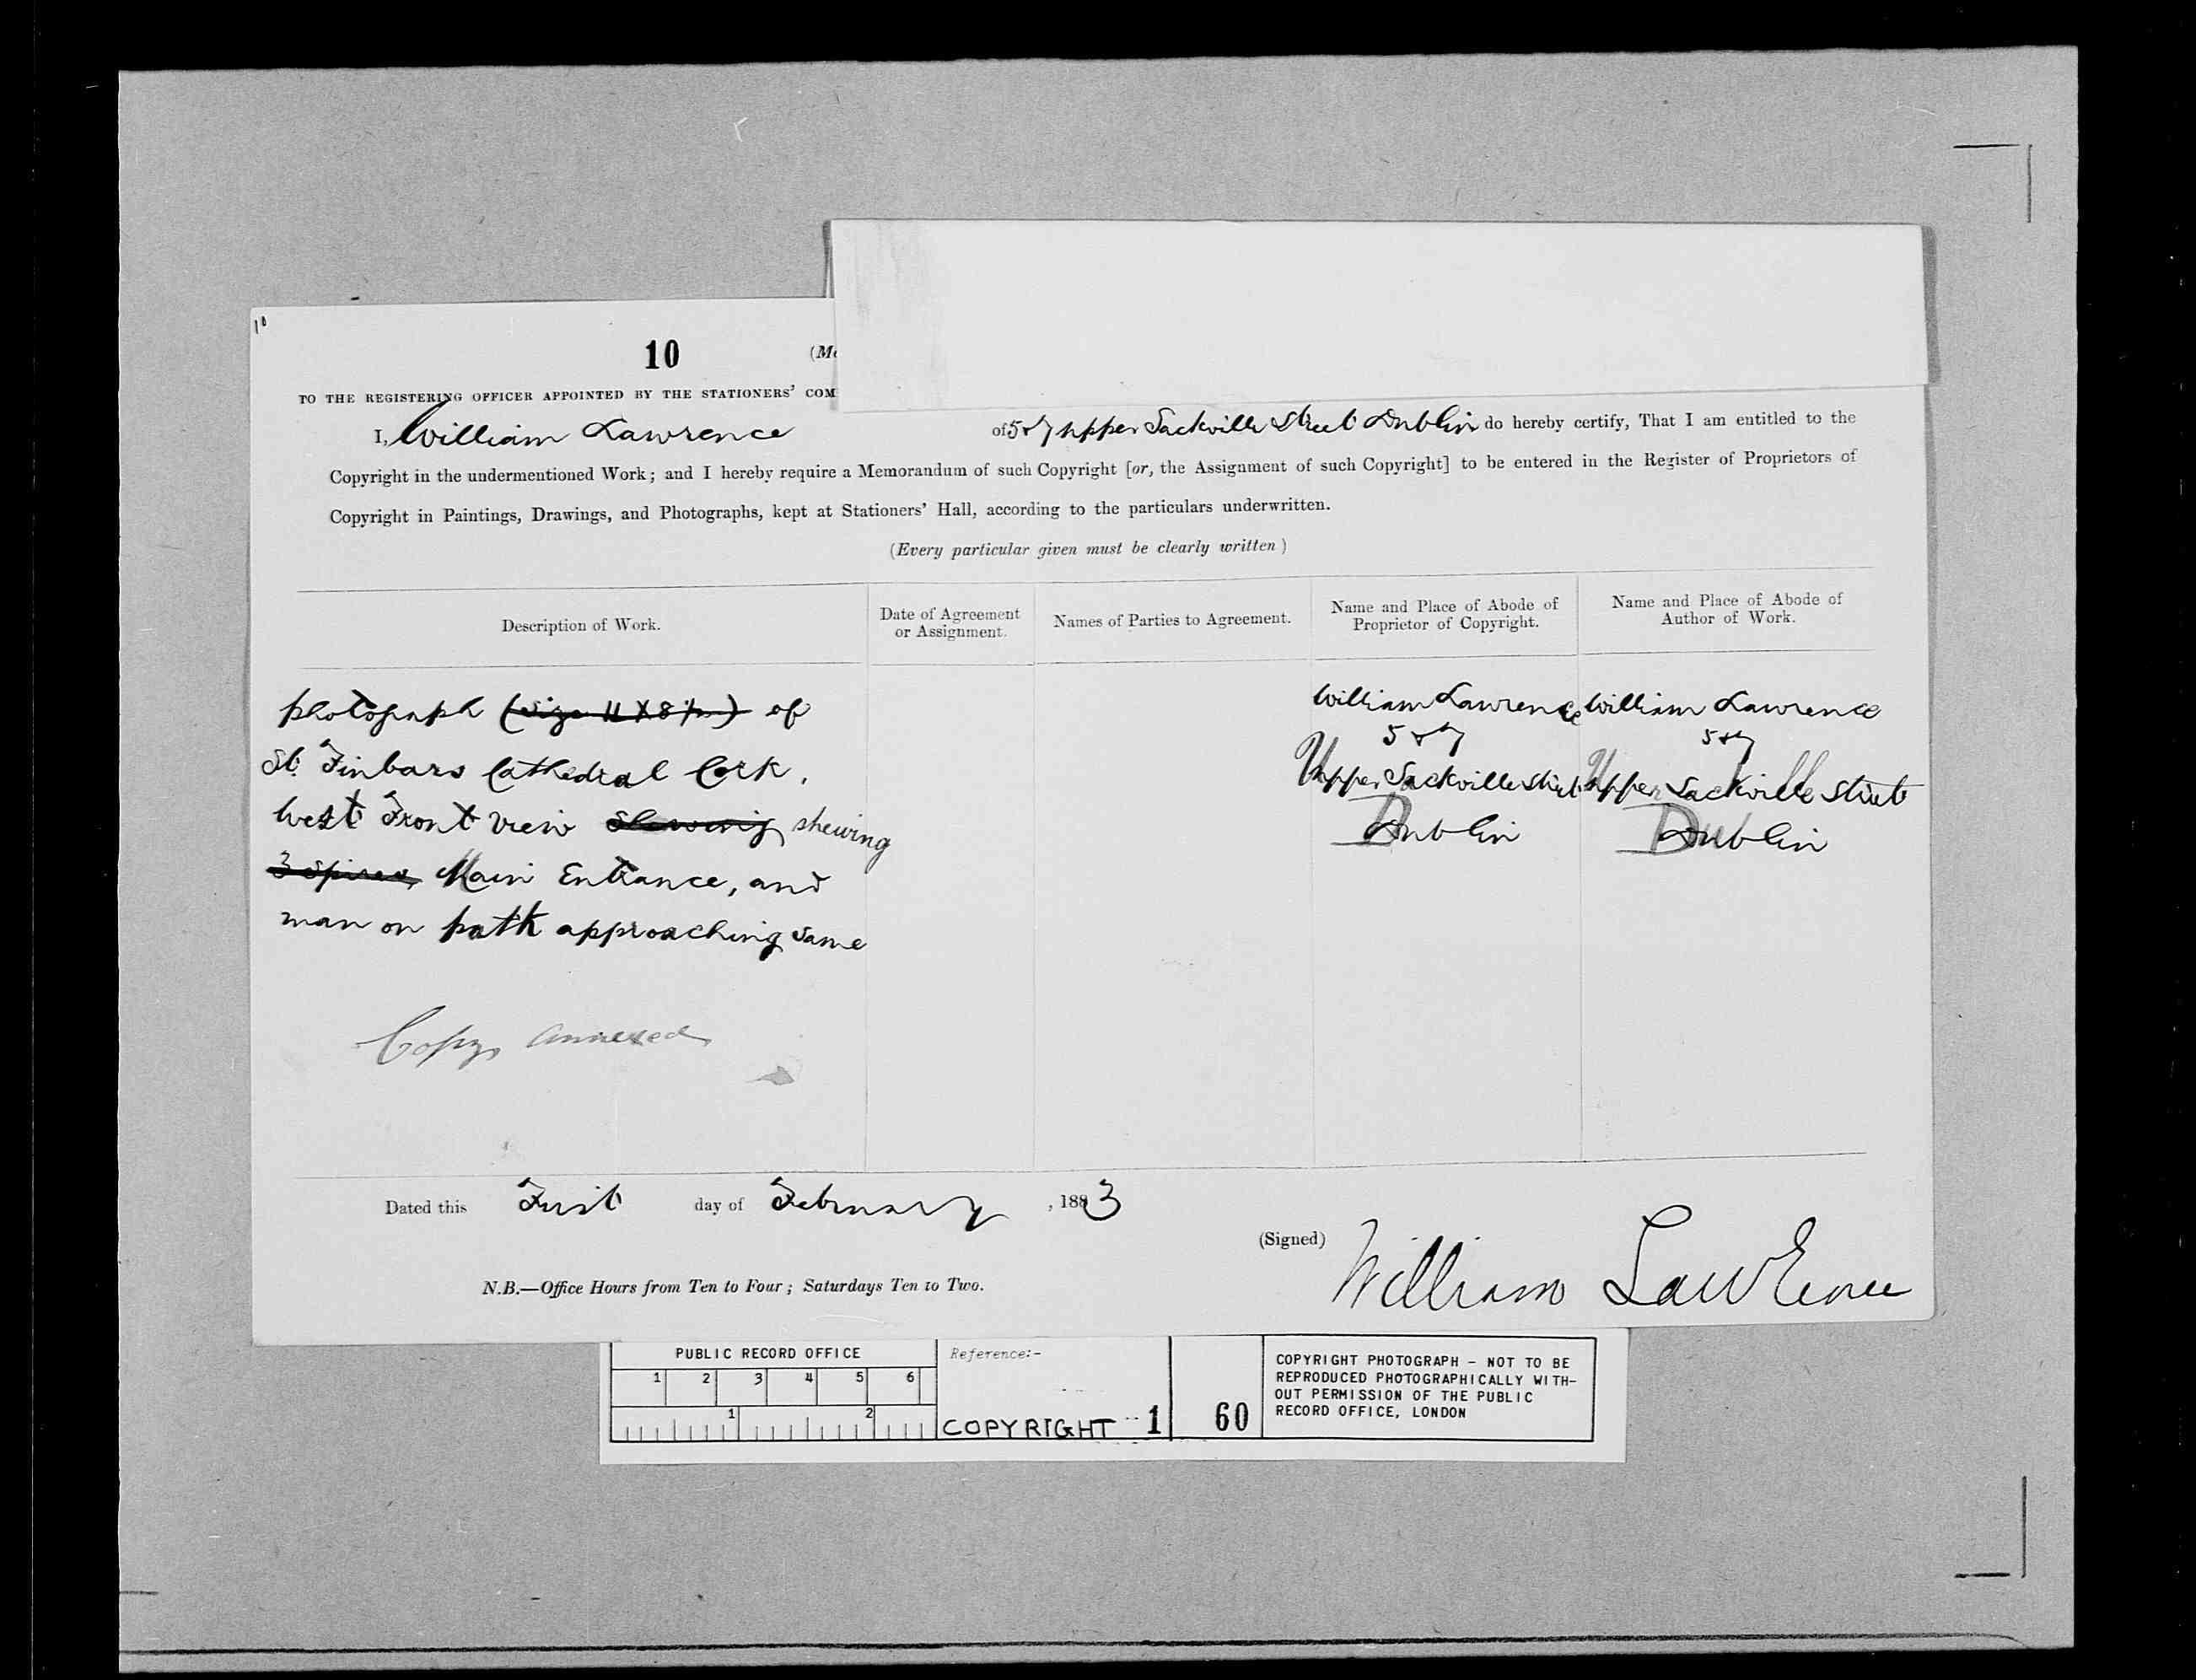 10
10
(Me
TO THE REGISTERING OFFICER APPOINTED BY THE STATIONERS' COM
I, William Lawrence of 5 & 7 upper Sackville Street Dublin do hereby certify, That I am entitled to the
Copyright in the undermentioned Work; and I hereby require a Memorandum of such Copyright [or, the Assignment of such Copyright] to be entered in the Register of Proprietors of
Copyright in Paintings, Drawings, and Photographs, kept at Stationers' Hall, according to the particulars underwritten.
(Every particular given must be clearly written)
Description of Work.
Date of Agreement
or Assignment.
Names of Parties to Agreement.
Name and Place of Abode of
Proprietor of Copyright.
Name and Place of Abode of
Author of Work.
photograph (size 11 X 8 ½) of
St. Finbars Cathedral Cork.
West Front View Shewing shewing
3 Spires, Main Entrance, and
man on path approaching same
Copy annexed
William Lawrence
5 & 7
Upper Sackville Street
Dublin
William Lawrence
5 & 7
Upper Sackville Street
Dublin
Dated this First day of February, 1883
(Signed) William Lawrence
N.B.—Office Hours from Ten to Four; Saturdays Ten to Two.
PUBLIC RECORD OFFICE
1 2 3 4 5 6
1 2
Reference:-
COPYRIGHT 1 60
COPYRIGHT PHOTOGRAPH - NOT TO BE
REPRODUCED PHOTOGRAPHICALLY WITH-
OUT PERMISSION OF THE PUBLIC
RECORD OFFICE, LONDON